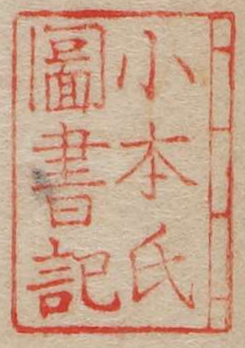 小本氏
圖書記